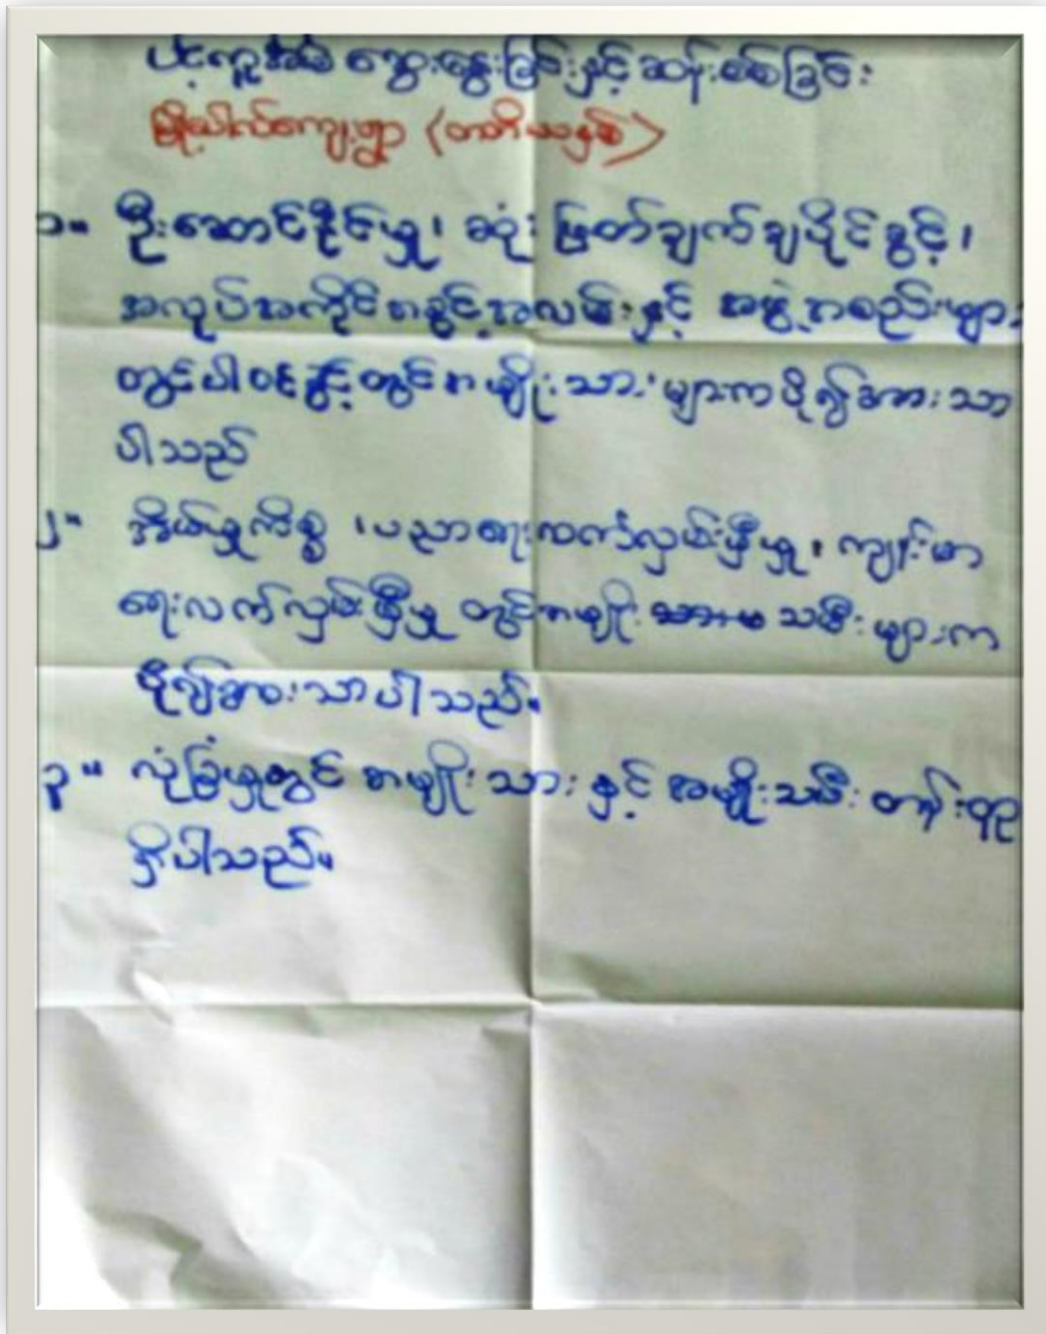 ပင့်ကူအိမ် ဆွေးနွေးခြင်းနှင့်ဆန်းစစ်ခြင်း
မြို့ပေါ်ကျေးရွာ (တတိယနှစ်)
၁။ ဦးဆောင်နိုင်မှု၊ ဆုံးဖြတ်ချက်ချပိုင်ခွင့်၊
အလုပ်အကိုင်အခွင့်အလမ်းနှင့် အဖွဲ့အစည်းများ
တွင်ပါဝင်ခွင့်တွင်အမျိုးသားများကပို၍အားသာ
ပါသည်
၂။ အိမ်မှုကိစ္စ ၊ပညာရေးလက်လှမ်းမှီမှု၊ ကျန်းမာ
ရေးလက်လှမ်းမှီမှု တွင်အမျိုး သမီးများက
ပို၍အားသာပါသည်။
၃။ လုံခြုံမှုတွင် အမျိုးသားနှင့် အမျိုးသမီး တန်းတူ
ရှိပါသည်။